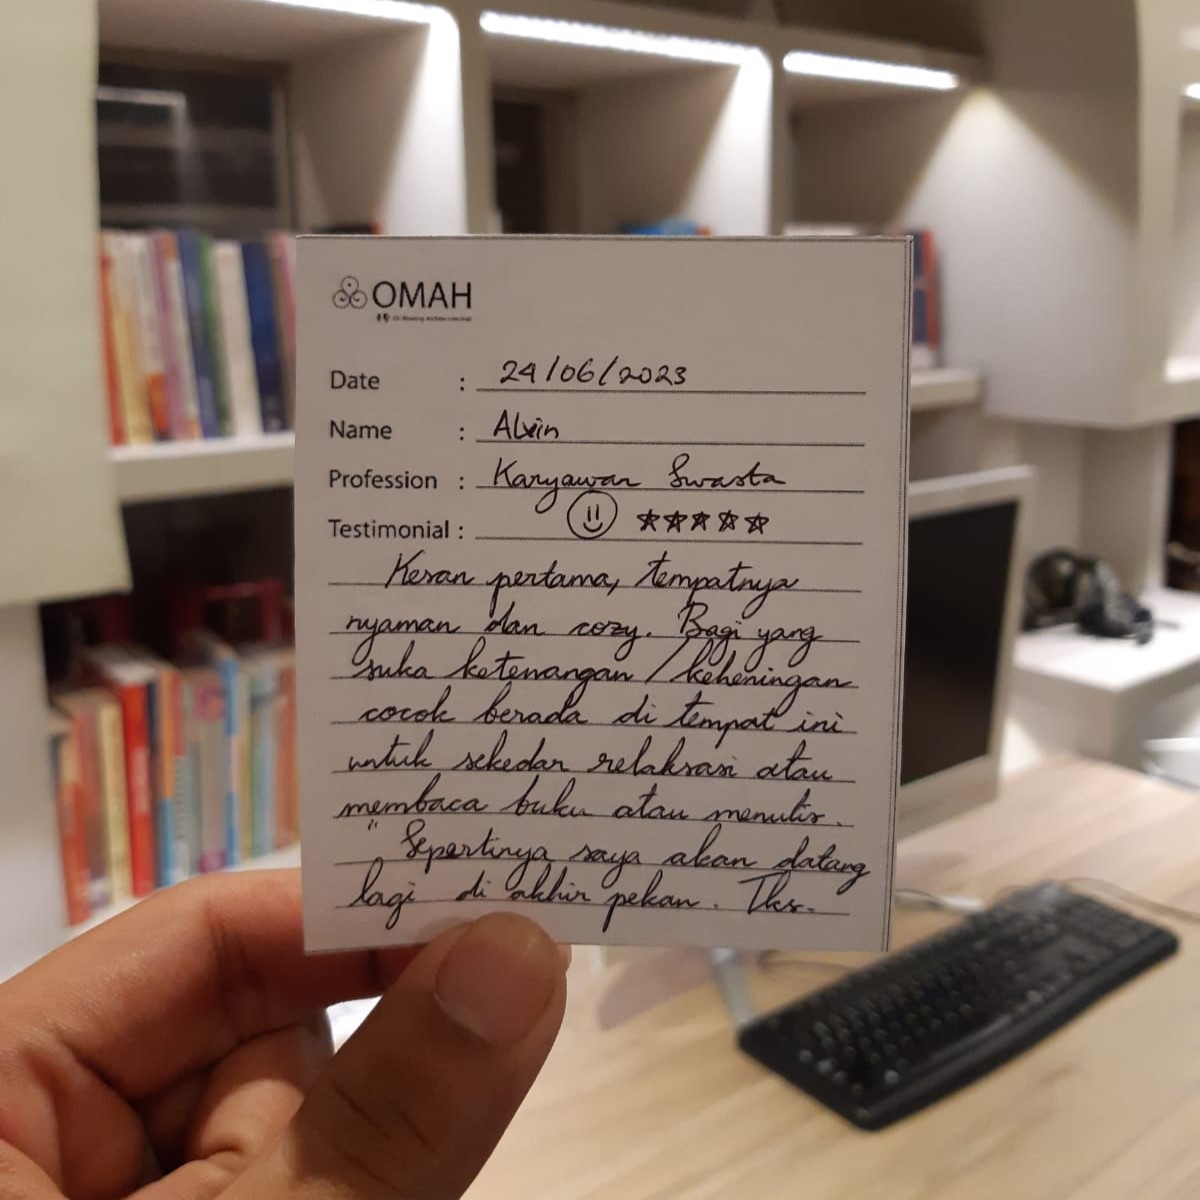 OMAH
Date : 24/06/2023
Name : Alvin
Profession : Karyawan Swasta
Testimonial :
Kesan pertama, tempatnya
nyaman dan cozy. Bagi yang
suka ketenangan / keheningan
cocok berada di tempat ini
untuk sekedar relaksasi atau
membaca buku atau menulis.
" Sepertinya saya akan datang
lagi di akhir pekan. Tks.